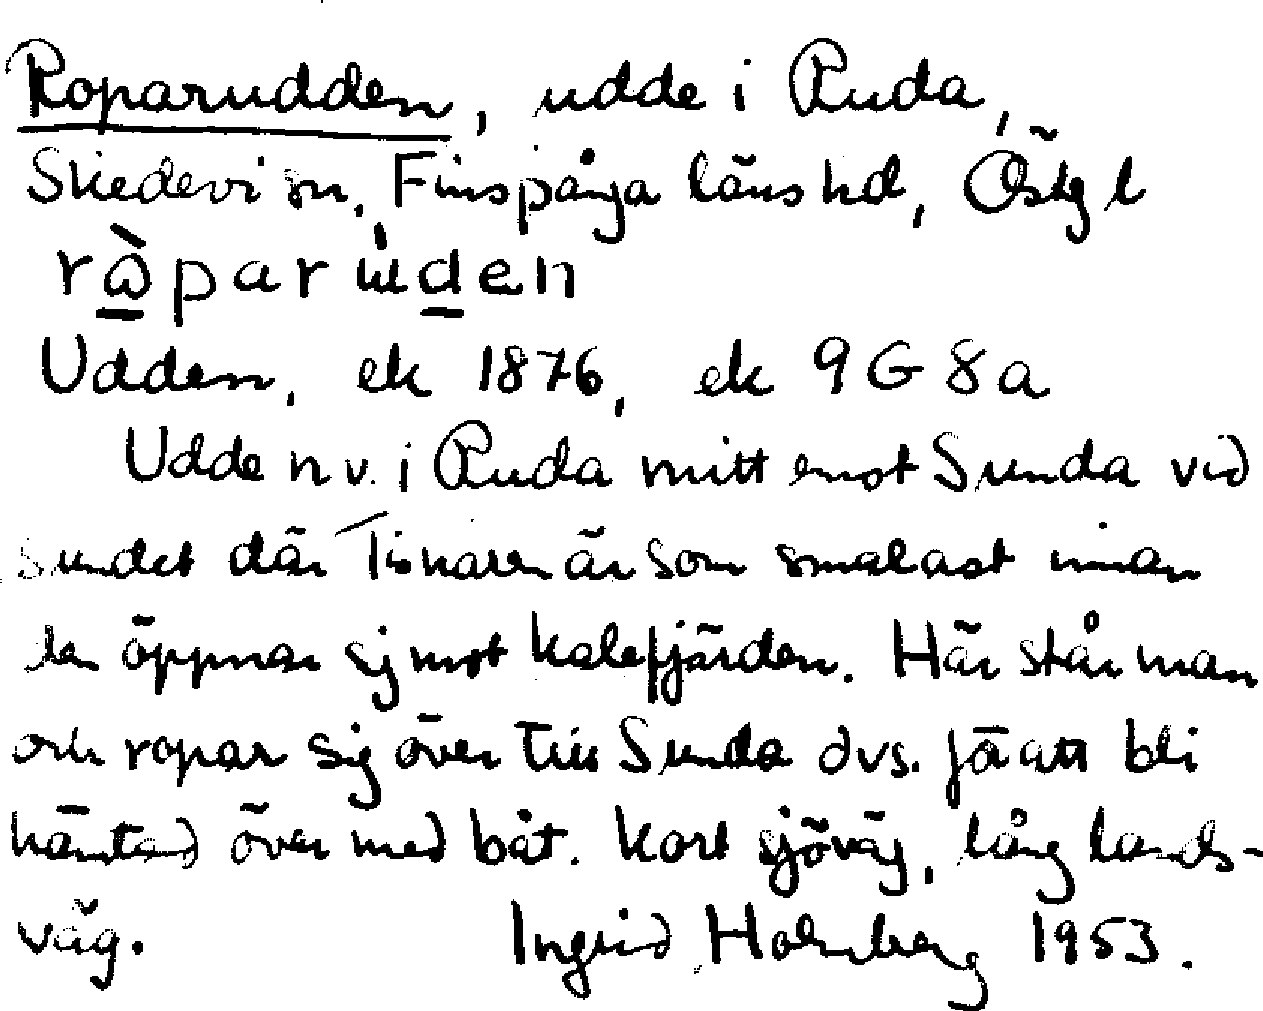 Roparudden, udde i Ruda,
Skedevi sn, Finspånga läns hd, Östgl
rå̀paru̇den
Udden, ek 1876, ek 9G8a
Udde n v. i Ruda mitt emot Sunda vid
sundet där Tisnaren är som smalast innan
den öppnar sig mot Kalefjärden. Här står man
och ropar sig över till Sunda dvs. för att bli
hämtad över med båt. Kort sjöväg, lång lands-
väg. Ingrid Holmberg 1953.